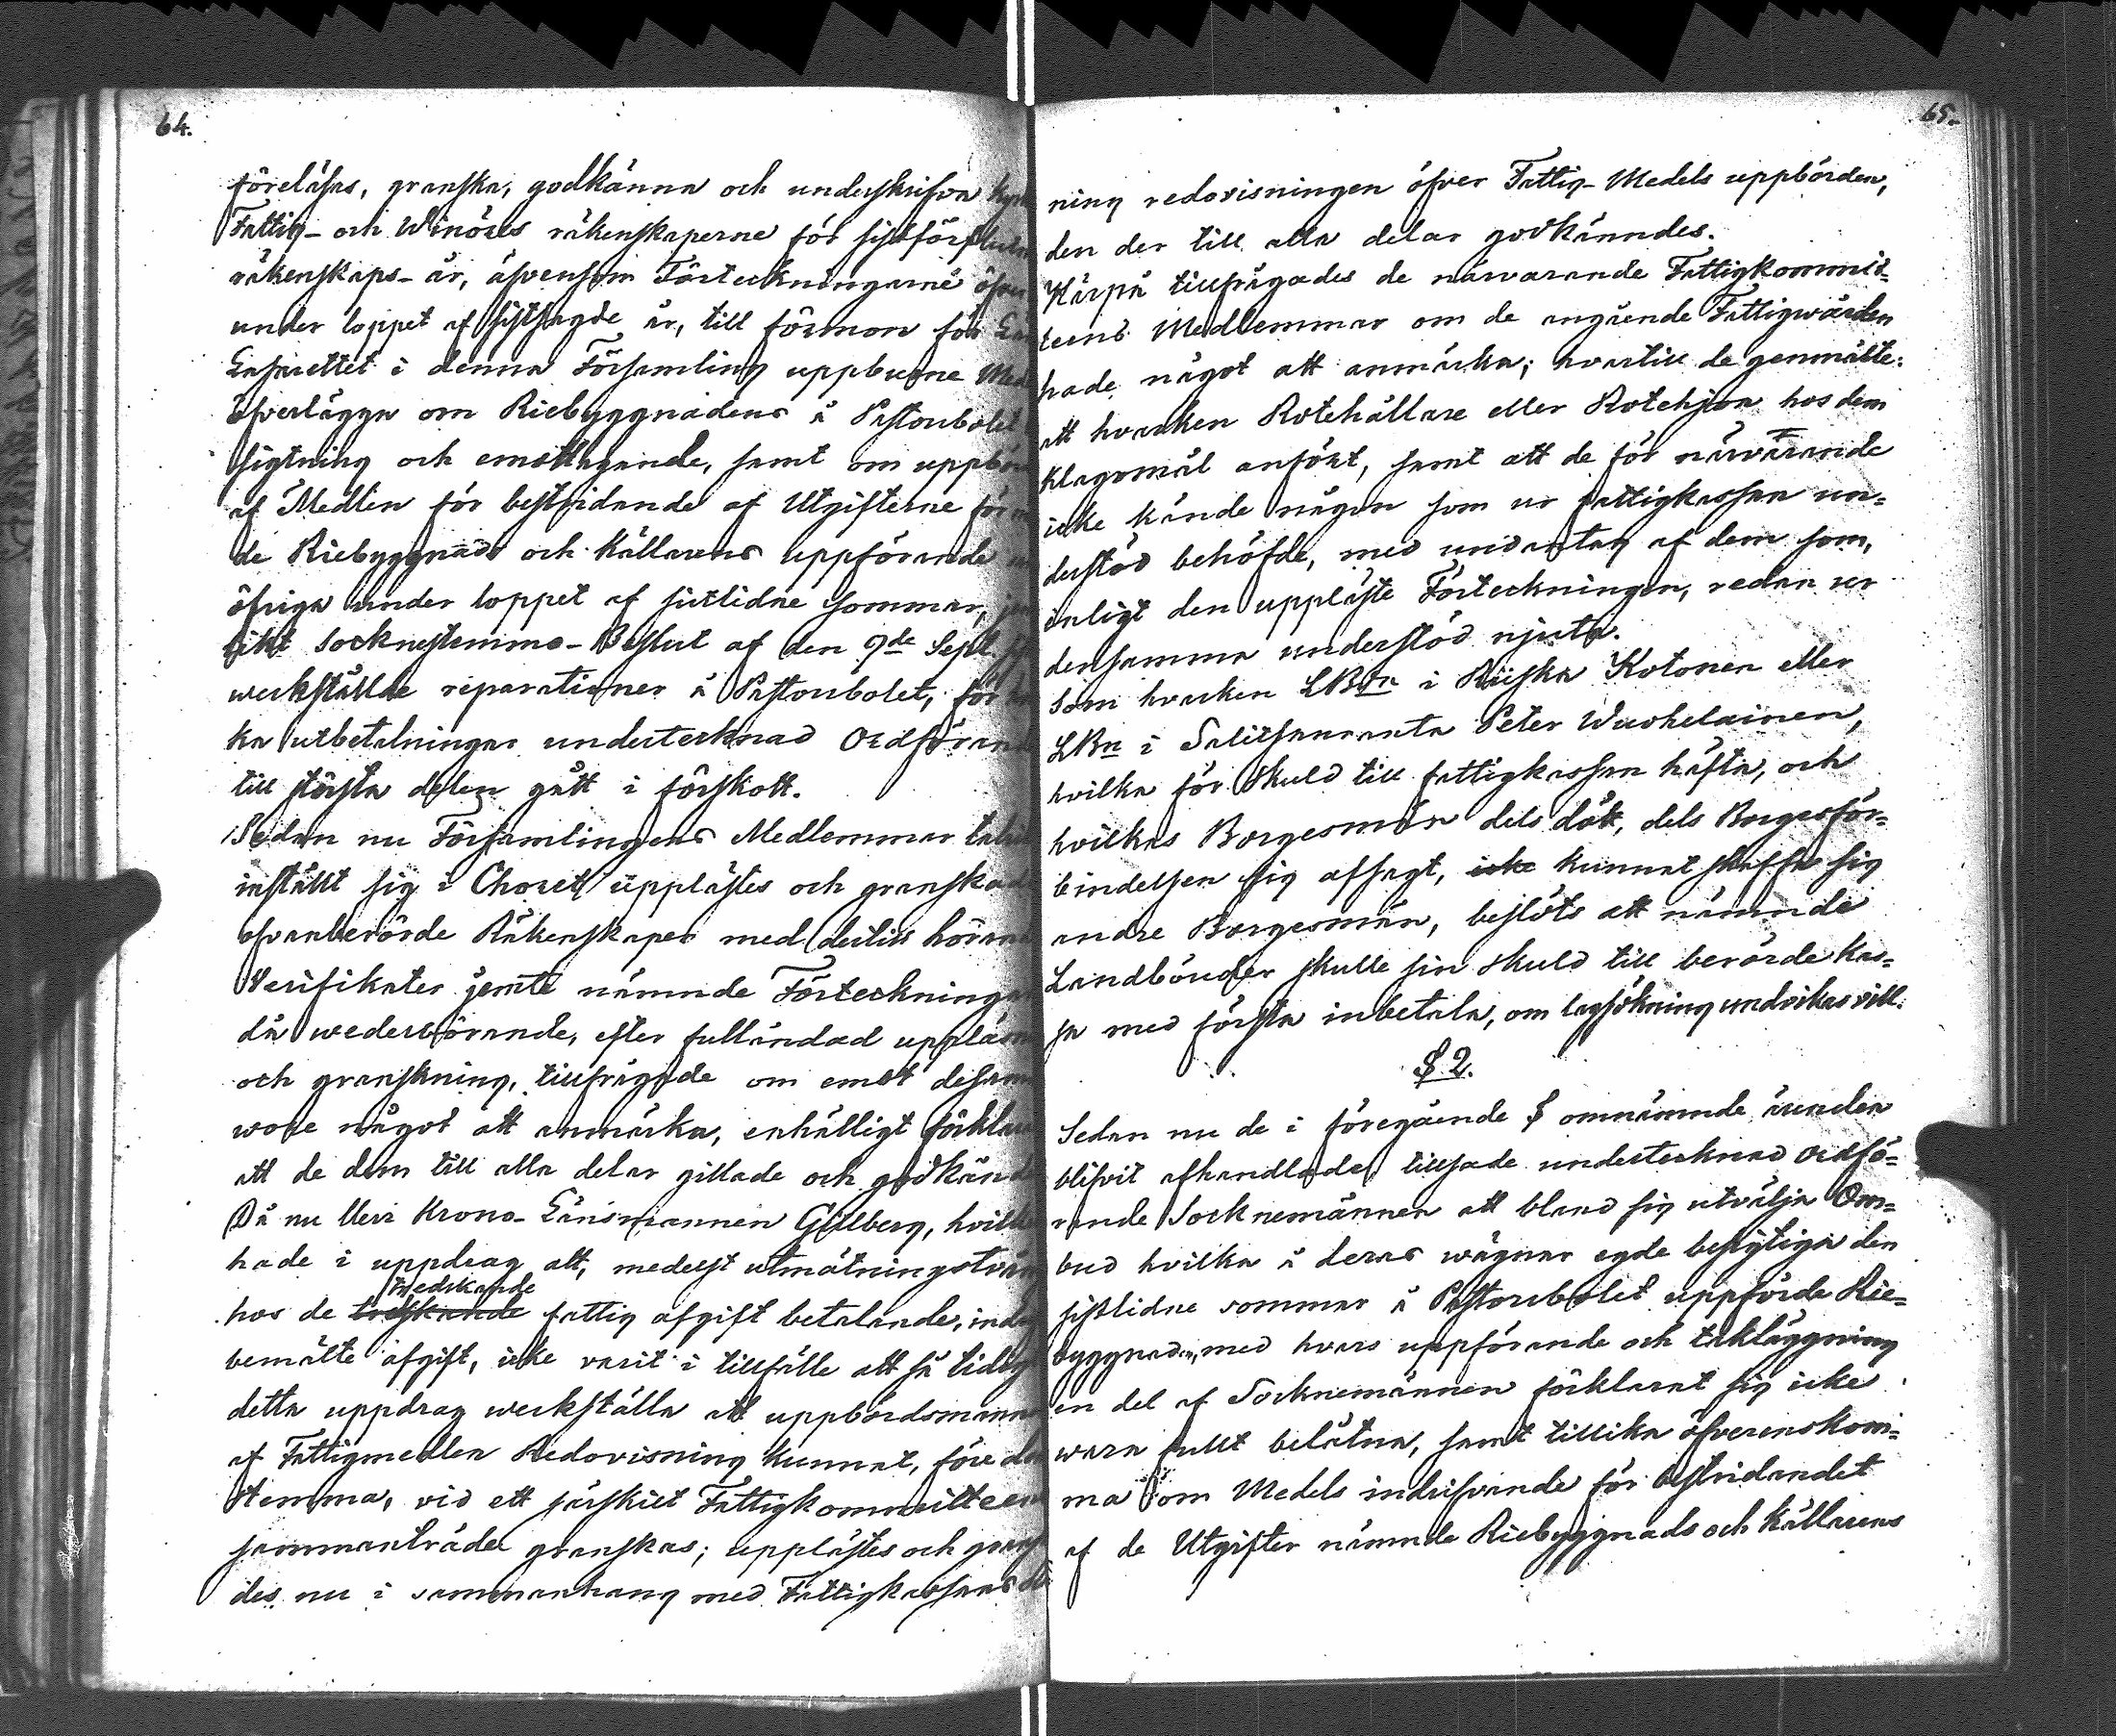 64.
föreläsas, granska, godkänna och underskrifva
Fattig- och Winörs räkenskaperne för sistförflutn
räkenskaps-år, äfvensom Förteckningarne öfver
under loppet af sistsagde år, till förmon för
Lasarettet i denna Församling uppburne Med
öfverlägga om Riebyggnadens å Pastorsbolet
sigtning och emottagande, samt om uppbör
af Medlen för bestridande af Utgifterne för
de Riebyggnads och Källarens uppförande
öfriga under loppet af sistlidne sommar,
likt Socknestemmo-Beslut af den 9de Sept.
werkställde reparationer å Pastorsbolet, för
ka utbetalningar undertecknad Ordföran
till största delen gått i förskott.
Sedan nu Församlingens Medlemmar
inställt sig i Choret, upplästes och granskade
ofvanberörde Räkenskaper med dertill höran
Verifikater jemte nämnde Förteckningar
då wederbörande, efter fulländad uppläsn
och granskning, tillfrågade om emot desam
wore något att anmärka, enhälligt förklar
att de dem till alla delar gillade och godkände
Då nu Herr Krono-Länsmannen Gyllberg, hvilk
hade i uppdrag att, medelst utmätningstvång
tredskande
hos de tredskande fattig afgift betalande, indr
bemälte afgift, icke varit i tillfälle att så tidigt
detta uppdrag werkställa att uppbördsmann
af Fattigmedlen Redovisning kunnat, före de
Stemma, vid ett särskilt Fattigkommitteen
sammanträde granskas; upplästes och gransk
des nu i sammanhang med Fattigkassans
65.
ning redovisningen öfver Fattig-Medels uppbörden,
den der till alla delar godkändes.
Härpå tillfrågades de närvarande Fattigkommit-
teens Medlemmar om de angående Fattigwården
hade något att anmärka; hvartill de genmälte:
att hvarken Rotehållare eller Rotehjon hos dem
klagomål anfört, samt att de för närvarande
icke kände någon som ur fattigkassan un-
derstöd behöfde, med undantag af dem som,
enligt den uppläste Förteckningen, redan ur
densamma understöd njuta.
Som hvarken LBn i Riiska Kotonen eller
LBn i Peter Wauhelainen,
hvilka för skuld till fattigkassan häfta, och
hvilkas Borgesmän dels dött, dels Borgesför-
bindelsen sig afsagt, icke kunnat skaffa sig
andre Borgesmän, beslöts att nämnde
Landbönder skulle sin skuld till berörde Kas-
sa med första inbetala, om lagsökning undvikas vill.
§ 2.
Sedan nu de i föregående § omnämnde ärenden
blifvit afhandlade, tillsade undertecknad Ordfö-
rande Socknemännen att bland sig utvälja Om-
bud hvilka å deras wägnar egde besigtiga den
sistlidne sommar å Pastorsbolet uppförde Rie-
byggnad, med hvars uppförande och takläggning
en del af Socknemännen förklarat sig icke
wara fullt belåtna, samt tillika öfverenskom-
ma om Medels indrifvande för bestridandet
af de Utgifter nämnde Riebyggnads och Källarens